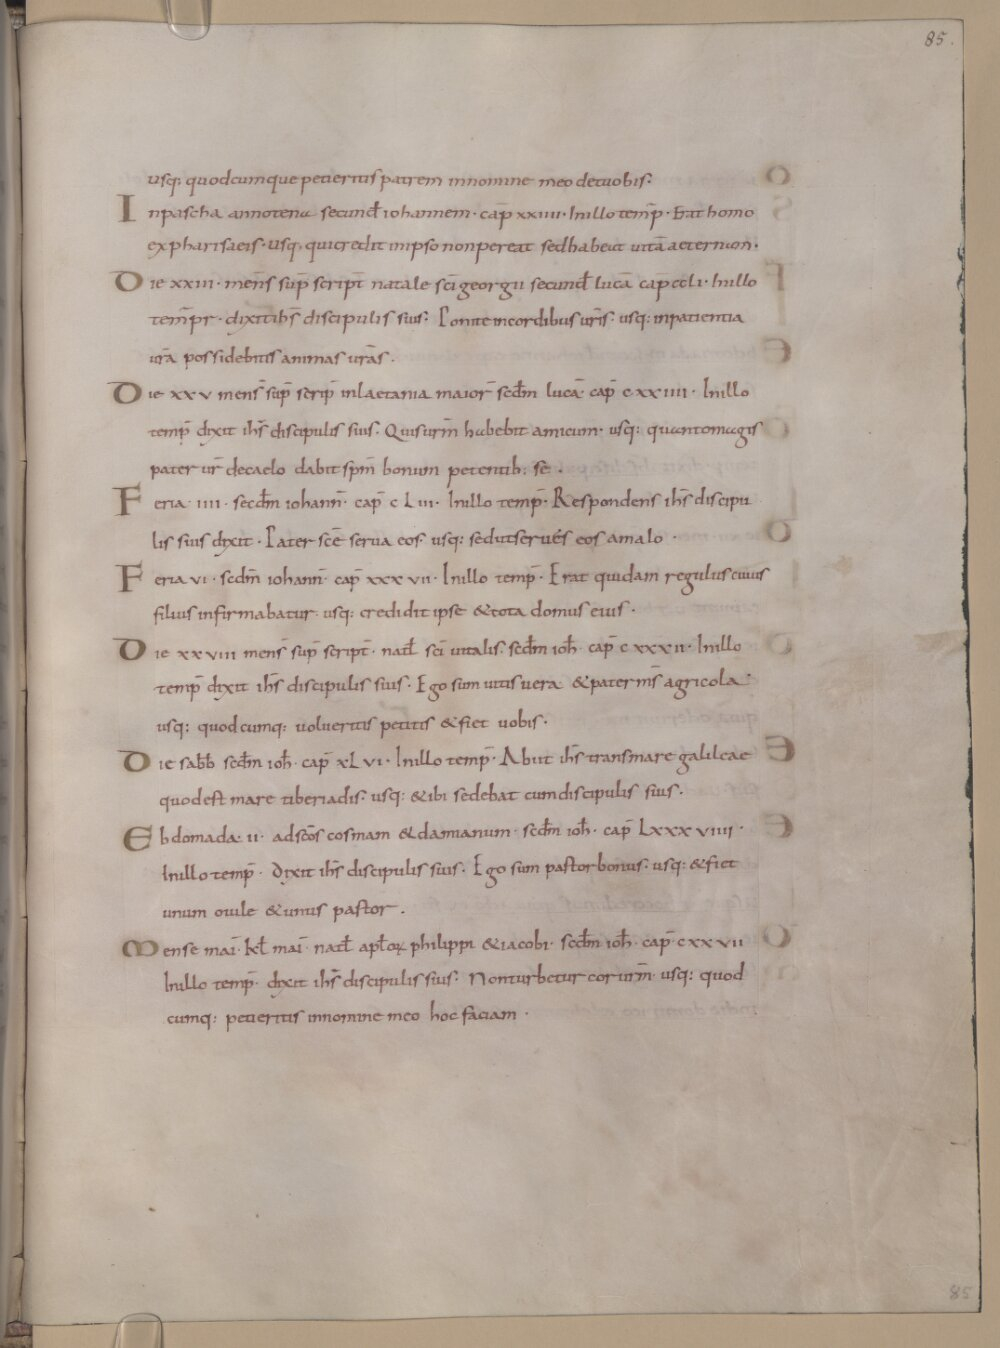 85.
usq: quodcumque petieritis patrem innomine meo detuobis.
Inpascha annotena secund iohannem · cap̄ xxiiii · Inillo temp̄ · Erat homo
expharisaeis · usq: quicredit inipso nonpereat sedhabeat uitā aeternam ·
Die xxiii · mens̄ sup̄ script̄ natale sc̄i georgii secund lucā cap̄ ccli · Inillo
temp̄r · dixit ih̄s discipulis suis · Ponite incordibus ur̄is · usq: inpatientia
ur̄a possidebitis animas ur̄as ·
Die xxv mens̄ sup̄ scrip̄ inlaetania maior̄ sed̄m lucā · cap̄ cxxiiii · Inillo
temp̄ dixit ih̄s discipulis suis · Quisur̄m habebit amicum · usq: quantomagis
pater ur̄ decaelo dabit sp̄m bonum petentib: se ·
Feria iiii · secd̄m iohann̄ · cap̄ c Liii · Inillo temp̄ · Respondens ih̄s discipu
lis suis dixit · Pater sc̄e serua eos · usq: sedutserues eos amalo ·
Feria vi · scd̄m iohann̄ · cap̄ xxxvii · Inillo temp̄ · Erat quidam reguluscuius
filius infirmabatur · usq: credidit ipse &tota domus eius ·
Die xxviii mens̄ sup̄ script̄ · natł sc̄i uitalis · scd̄m ioh̄ · cap̄ cxxxii · Inillo
temp̄ dixit ih̄s discipulis suis · Ego sum uitis uera &pater m̄s agricola ·
usq: quodcumq: uolueritis petitis &fiet uobis ·
Die sabb̄ scd̄m ioh̄ · cap̄ xLvi · Inillo temp̄ · Abiit ih̄s transmare galileae
quodest mare tiberiadis · usq: &ibi sedebat cumdiscipulis suis ·
Ebdomada · ii · adsc̄os cosmam &damianum · scd̄m ioh̄ · cap̄ Lxxxviiii ·
Inillo temp̄ · Dixit ih̄s discipulis suis · Ego sum pastorbonus · usq: &fiet
unum ouile &unus pastor ·
Mense mai · kł mai · natł apłoꝝ philippi &iacobi · scd̄m ioh̄ · cap̄ cxxvii
Inillo temp̄ · dixit ih̄s discipulis suis · Nonturbetur corur̄m · usq: quod
cumq: petieritis innomine meo hoc faciam ·
85